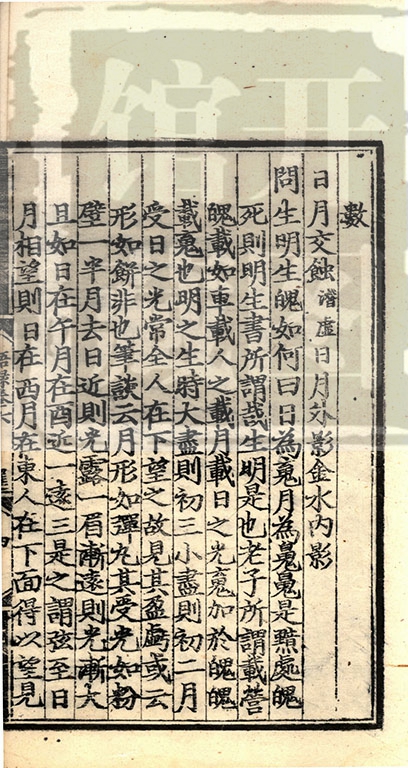 數
日月交蝕潛虛日月外影金水内影
問生明生魄如何曰日為䰟月為魄䰟是黯處魄
死則明生書所謂哉生明是也老子所謂載營
魄載如車載人之載月載日之光䰟加於魄魄
載䰟也明之生時大盡則初三小盡則初二月
受日之光常全人在下望之故見其盈虧或云
形如餅非也筆談云月形如彈丸其受光如粉
壁一半月去日近則光露一眉漸遠則光漸大
且如日在午月在酉近一遠三是之謂弦至日
月相望則日在西月在東人在下面得以望見